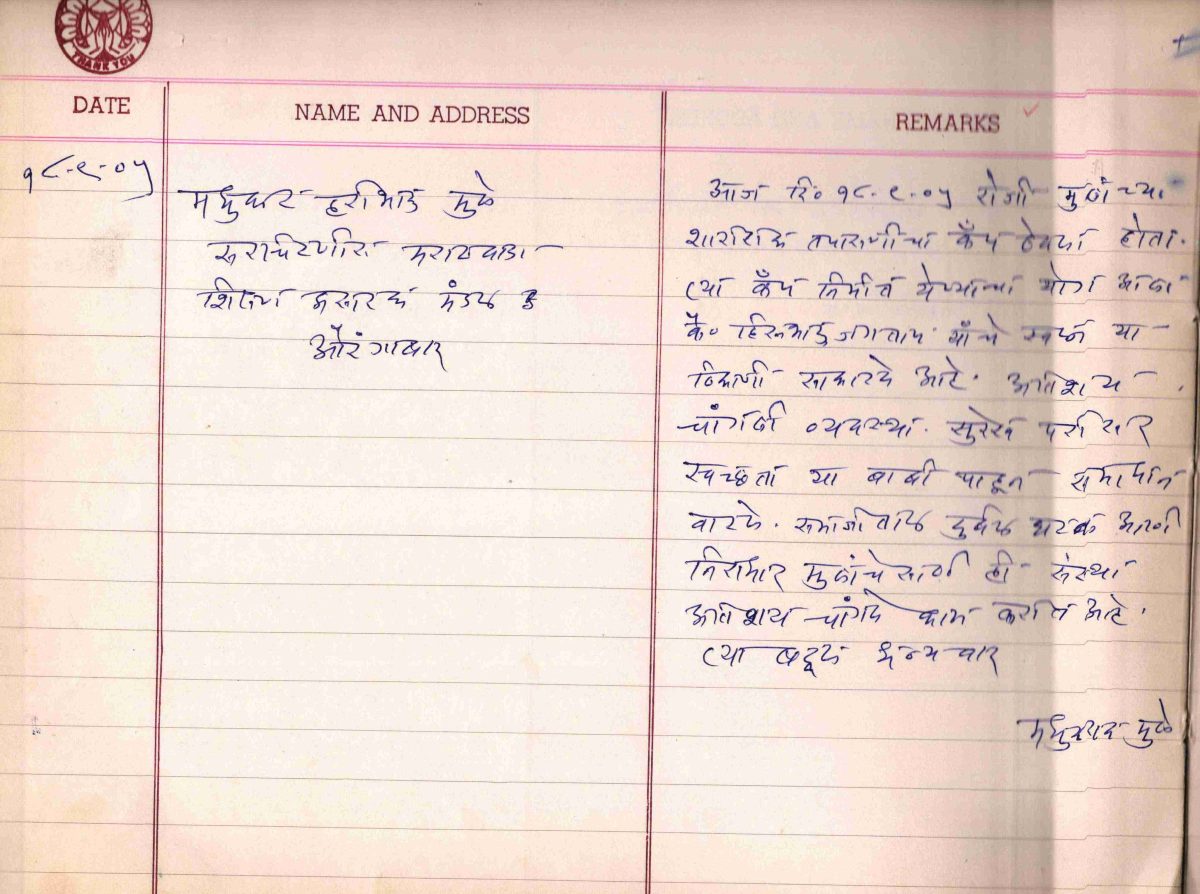 THANK YOU
DATE
NAME AND ADDRESS
REMARKS
१८-९-०५
मधुकर हरीभाऊ मुळे
सरचिटणीस मराठवाडा
शिक्षण प्रसारक मंडळ
औरंगाबाद
आज दि० १८-९-०५ रोजी मुलांच्या
शारिरिक तपासणीचा कँप ठेवला होता.
त्या कँप निमीत्त येण्याचा योग आला
कै० जगताप यांचे स्वप्न या
ठिकाणी साकारले आहे. अतिशय
चांगली व्यवस्था. सुरेख परिसर
स्वच्छता या बाबी पाहून समाधान
वाटले. समाजातील दुर्बल घटक आणी
निराधार मुलांचेसाठी ही संस्था
अतिशय चांगले काम करीत आहे.
त्या बद्दल धन्यवाद
मधुकर मुळे